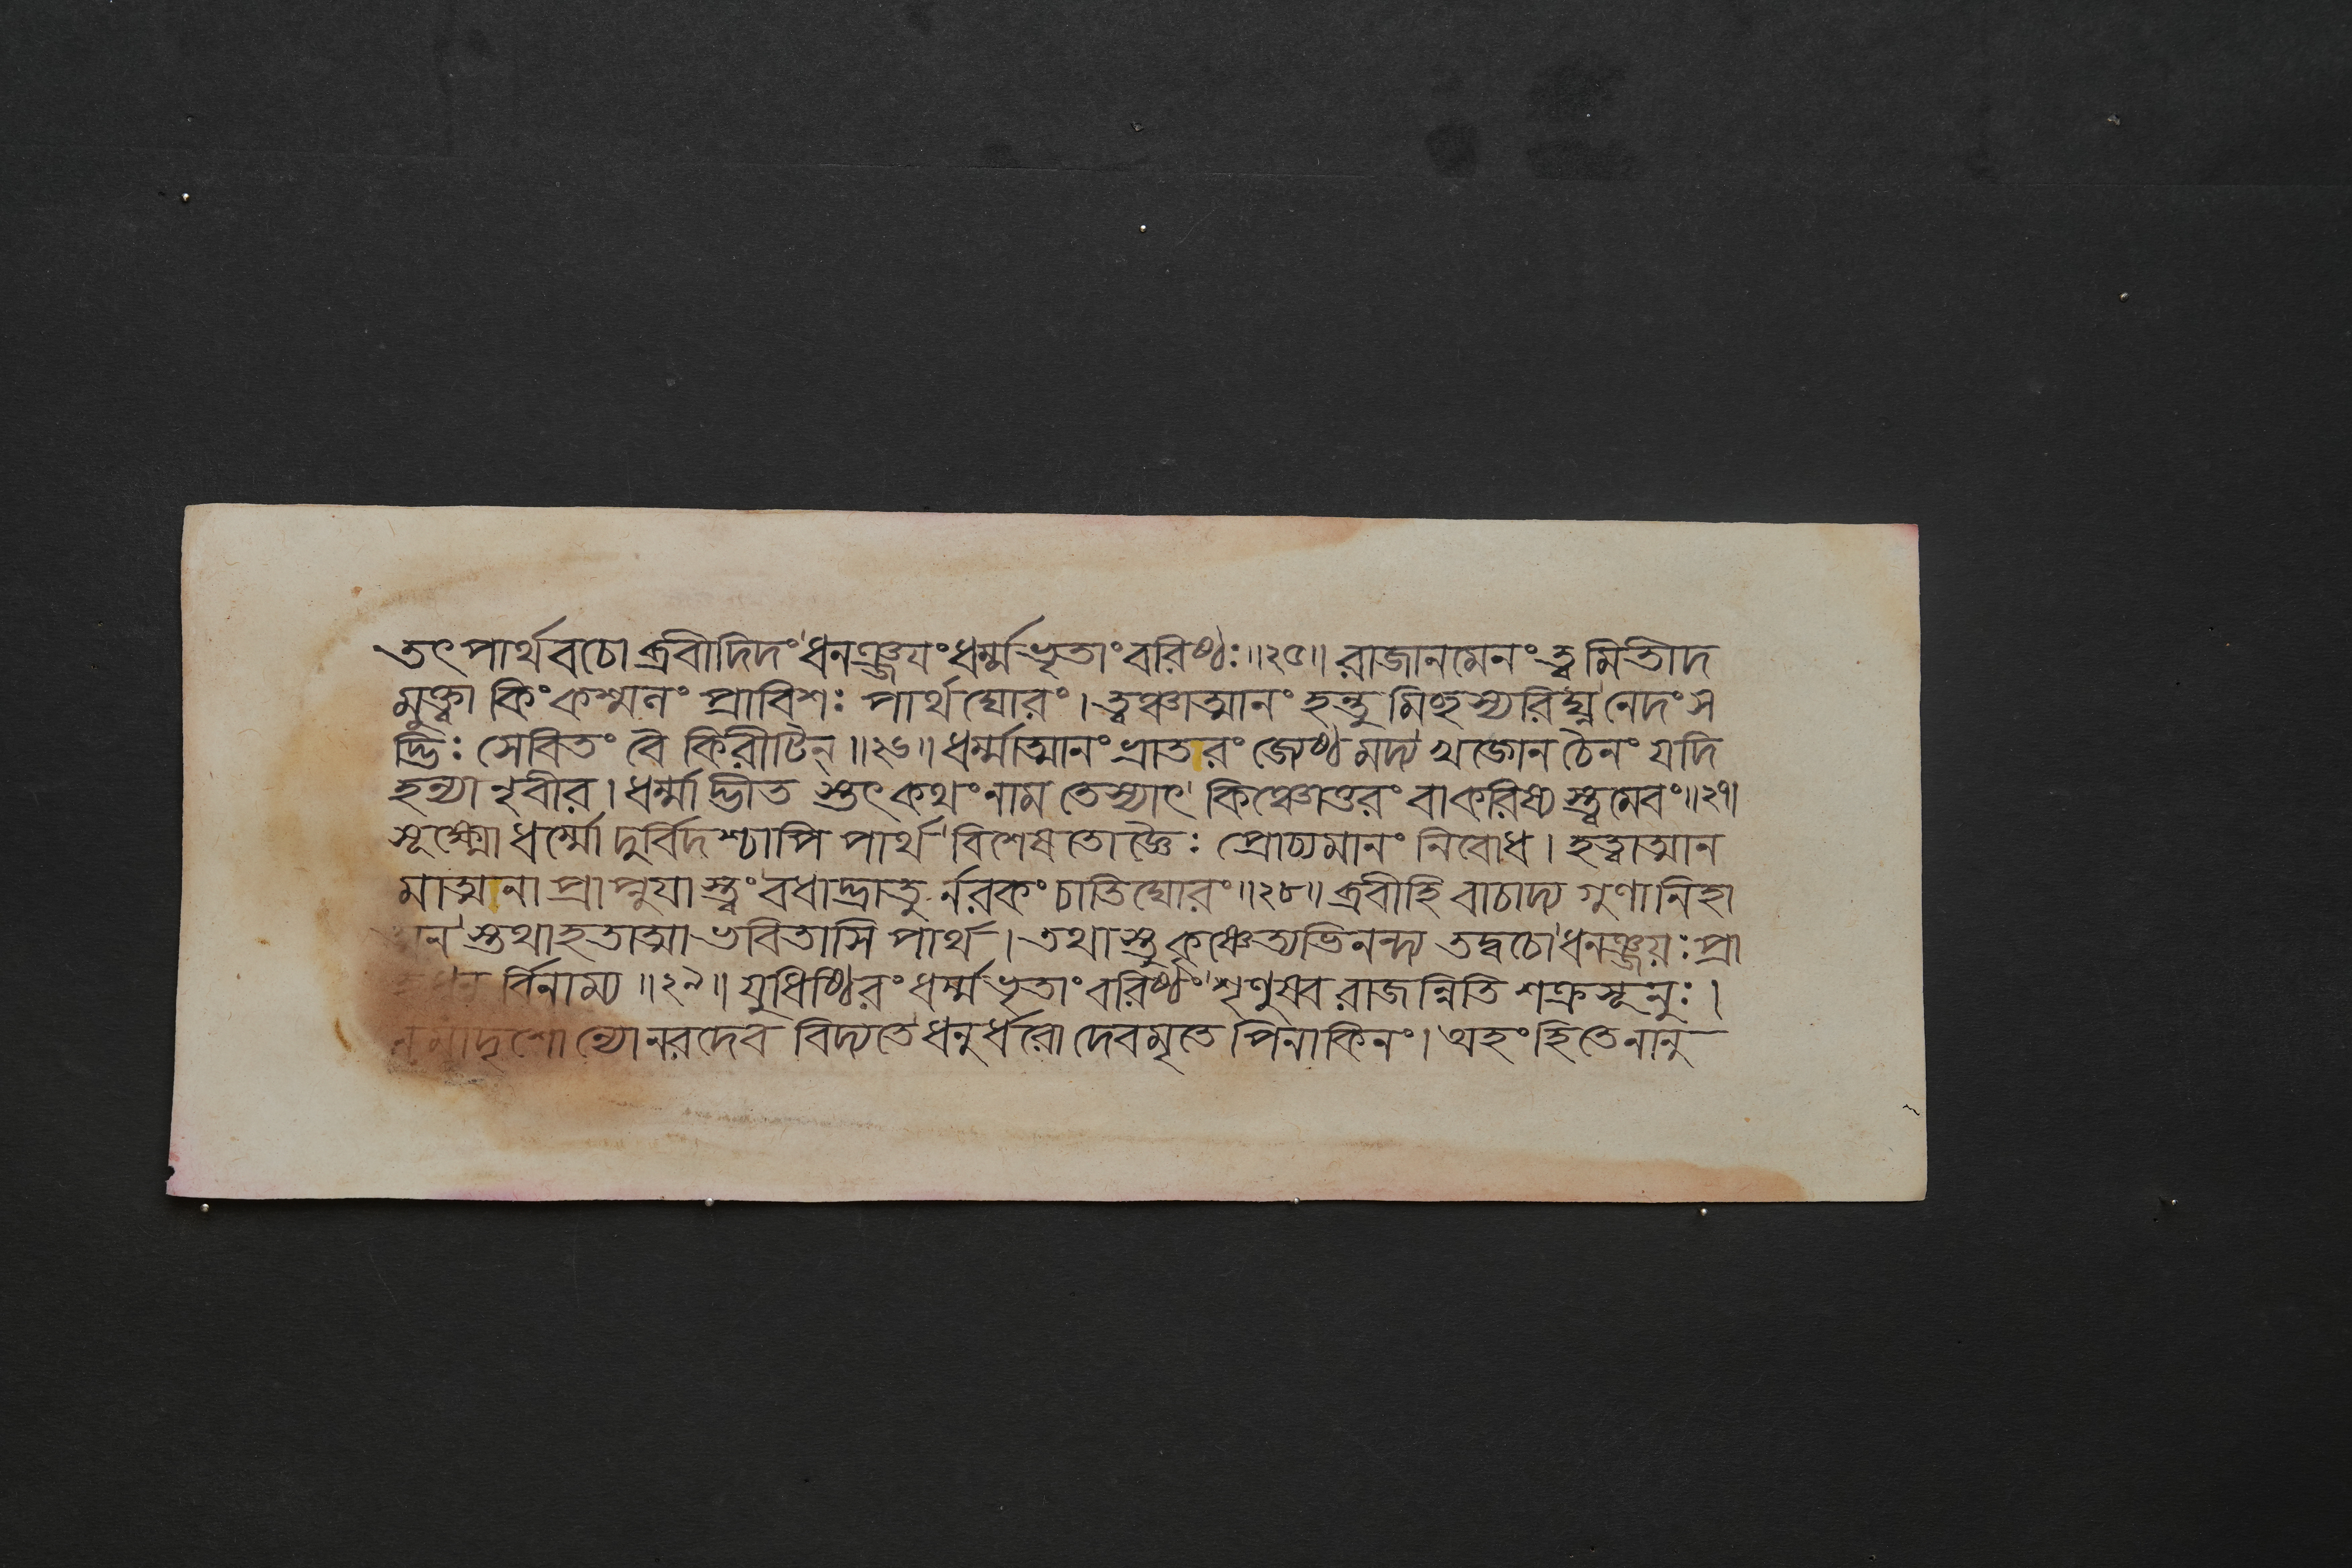 তৎ পার্থবচোঽব্রবীদিদং ধনঞ্জয়ং ধর্ম্মভৃতাং বরিষ্ঠঃ ॥২৫॥ রাজানমেনং ত্বমিতীদ
মুক্ত্বা কিং কশ্মলং প্রাবিশঃ পার্থ ঘোরং । ত্বঞ্চাত্মানং হন্তুমিচ্ছস্যরিঘ্ন নেদং স
দ্ভিঃ সেবিতং বৈ কিরীটিন্ ॥২৬॥ ধর্ম্মাত্মানং ভ্রাতরং জ্যেষ্ঠমদ্য খড়্গেন চৈনং যদি
হন্যা নৃবীর । ধর্ম্মাদ্ভীত স্তৎ কথং নাম তে স্যাৎ কিঞ্চোত্তরং বাকরিষ্য স্ত্বমেবং ॥২৭॥
সূক্ষ্মো ধর্ম্মো দুর্বিদশ্চাপি পার্থ বিশেষতোঽজ্ঞৈঃ প্রোচ্যমানং নিবোধ । হত্বাত্মান
মাত্মনা প্রাপ্নুয়া স্ত্বং বধাদ্ভ্রাতু র্নরকং চাতিঘোরং ॥২৮॥ ব্রবীহি বাচাদ্য গুণানিহা
ত্মন স্তথাহতাত্মা ভবিতাসি পার্থ । তথাস্তু কৃষ্ণেত্যভিনন্দ্য তদ্বচো ধনঞ্জয়ঃ প্রা
হ ধনু র্বিনাম্য ॥২৯॥ যুধিষ্ঠিরং ধর্ম্মভৃতাং বরিষ্ঠং শৃণুষ্ব রাজন্নিতি শক্রসূনুঃ ।
ন মাদৃশোঽন্যো নরদেব বিদ্যতে ধনুর্ধরো দেবমৃতে পিনাকিনং । অহং হি তেনানু